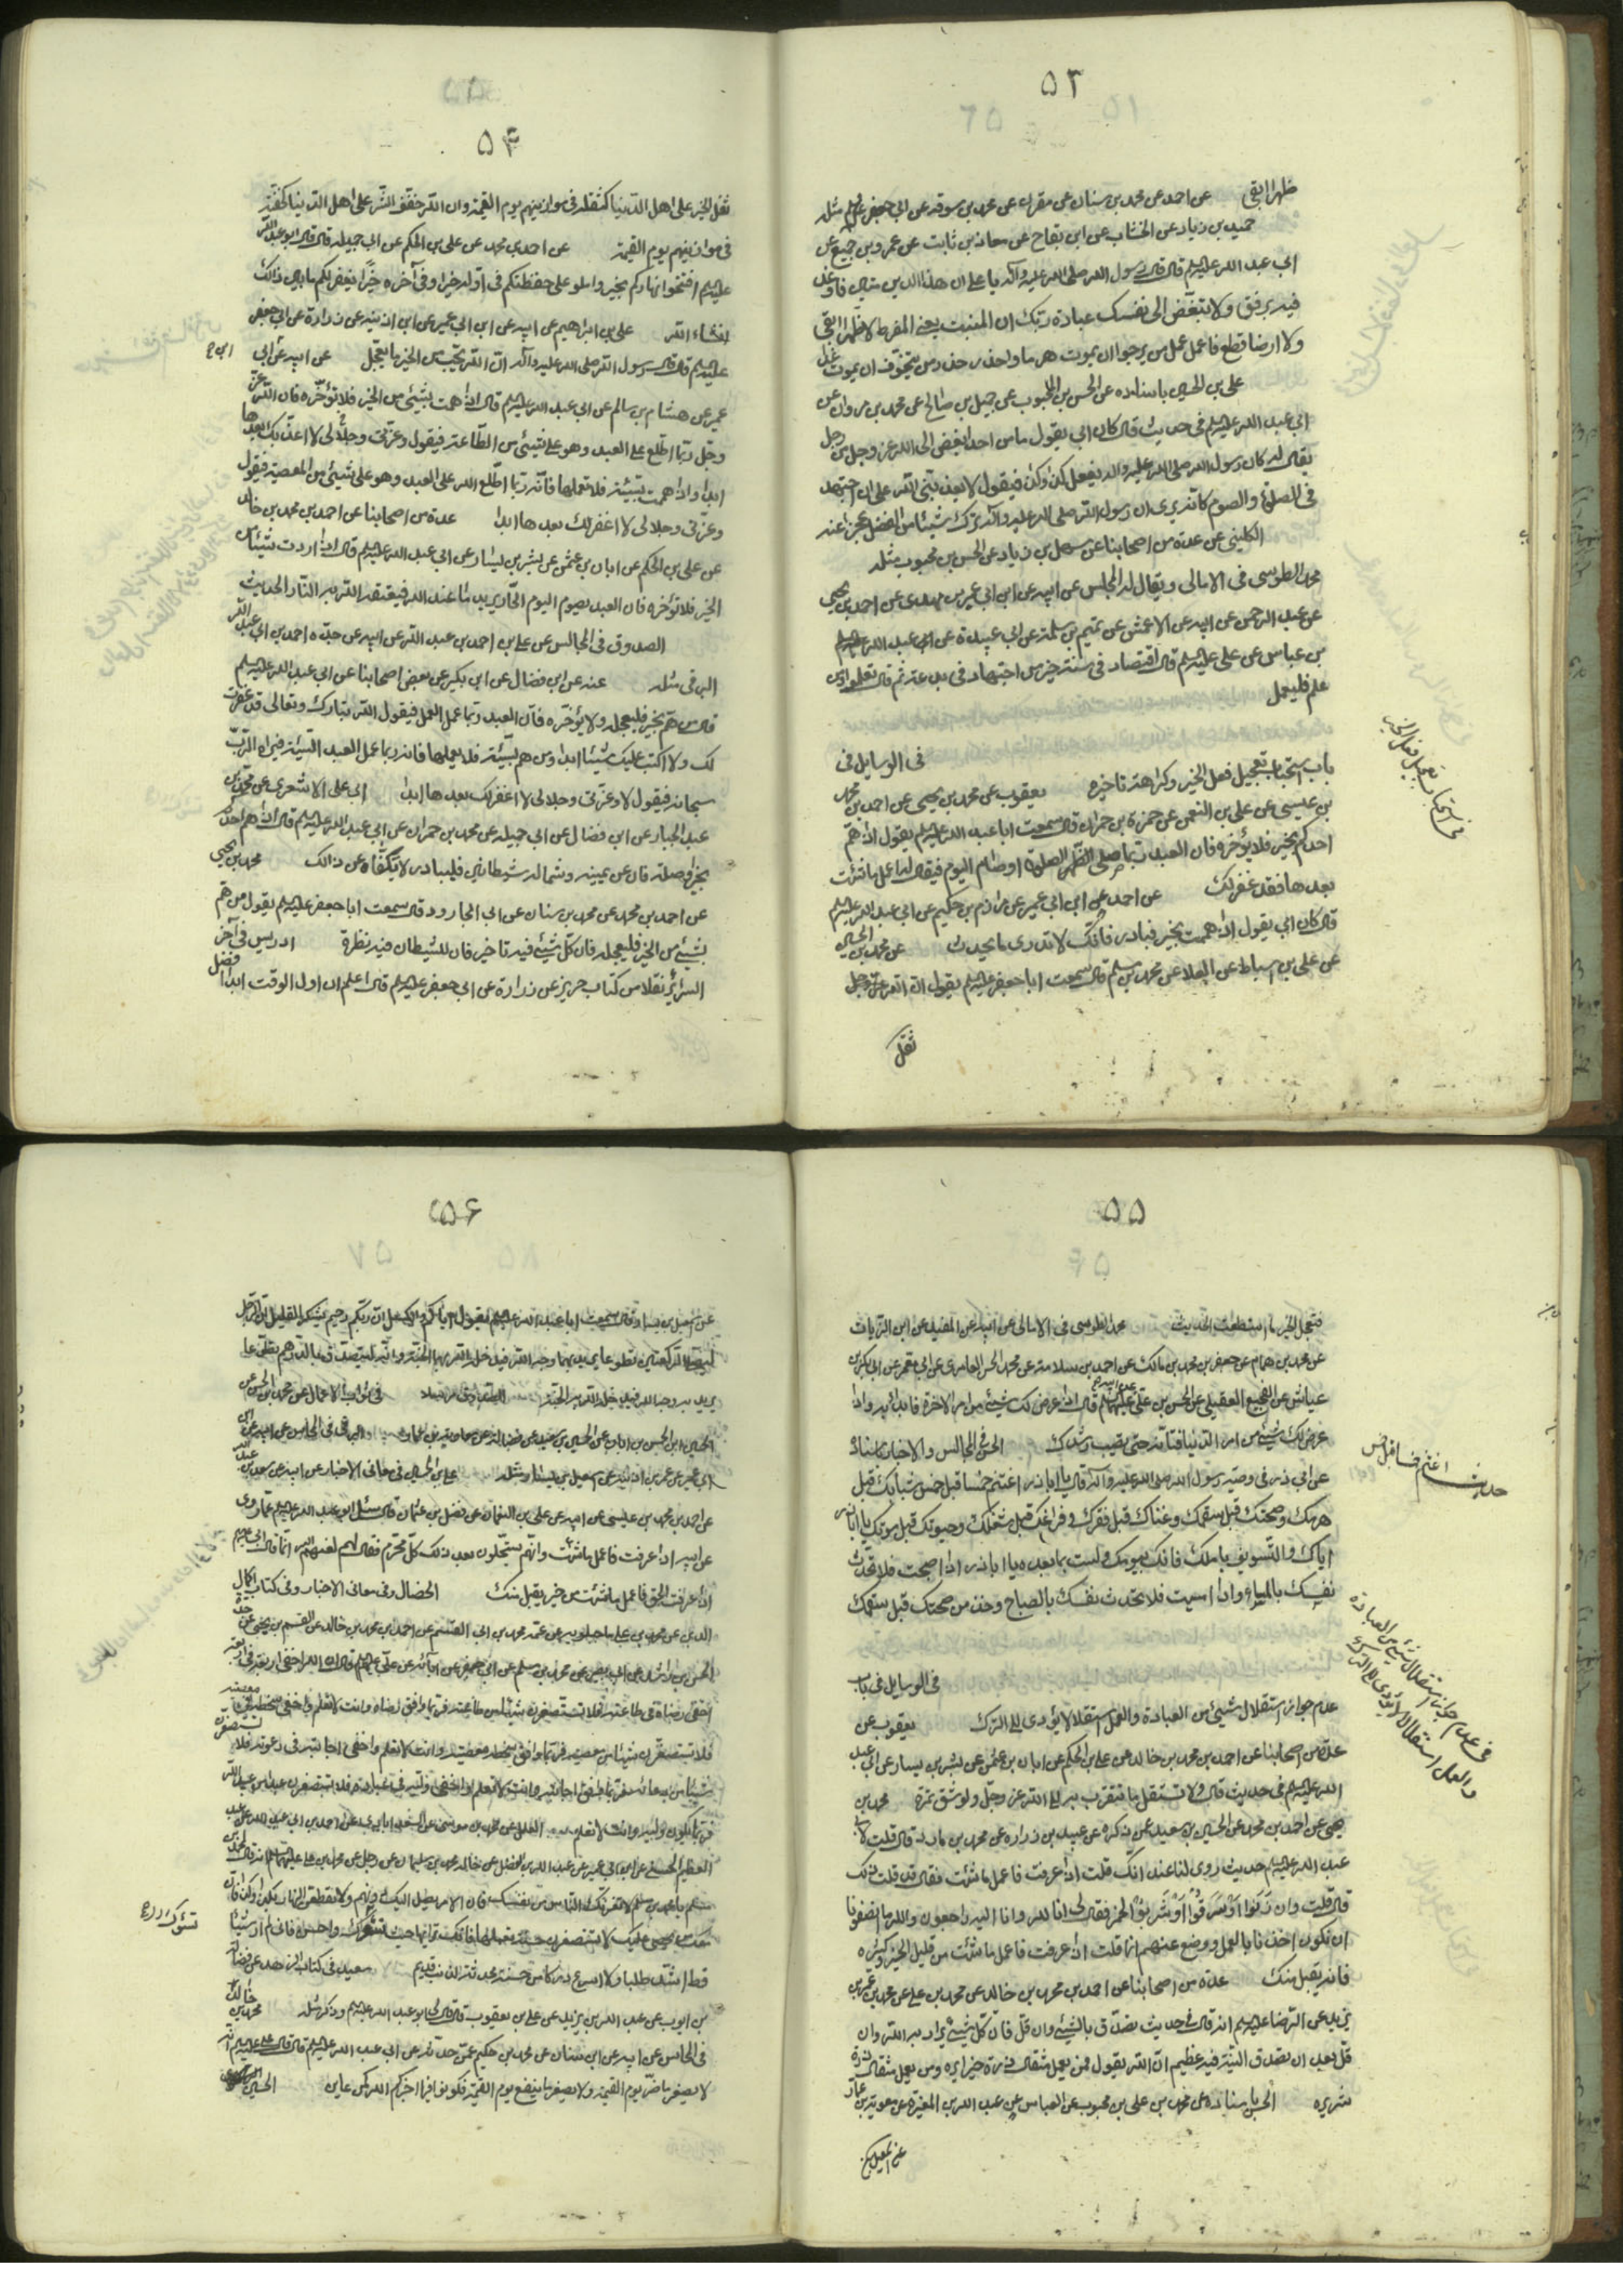 ۵۳
ظهرا ابقى عن احمد عن محمد بن سنان عن مقرن عن محمد بن سوقه عن ابي جعفر عليه السلم مثله
حميد بن زياد عن الخشاب عن ابن بقاح عن معاذ بن ثابت عن عمرو بن جميع عن
ابي عبد الله عليه السلم قال قال رسول الله صلى الله عليه وآله يا على ان هذا الدين متين فاوغل
فيه برفق ولا تبغض الى نفسك عبادة ربك ان المنبت يعنى المفرط لا ظهرا ابقى
ولا ارضا قطع فاعمل عمل من يرجوا ان يموت هرما واحذر حذر من يتخوف ان يموت غدا
على بن الحسين باسناده عن الحسن بن المحبوب عن جميل بن صالح عن محمد بن مروان عن
ابي عبد الله عليه السلم فى حديث قال كان ابي يقول ما من احد ابغض الى الله عز وجل من رجل
يقال له كان رسول الله صلى الله عليه وآله يفعل كذا وكذا فيقول لا يعذبني الله على ان اجتهد
فى الصلوة والصوم كانه يرى ان رسول الله صلى الله عليه وآله ترك شيئا من الفضل عجزا عنه
الكليني عن عدة من اصحابنا عن سهل بن زياد عن الحسن بن محبوب مثله
محمد الطوسى فى الامالى ويقال له المجالس عن ابيه عن ابن ابي عمير بن مهدى عن احمد بن يحيى
عن عبد الرحمن عن ابيه عن الاعمش عن تميم بن سلمة عن ابي عبيدة عن
بن عباس عن على عليه السلم قال اقتصاد فى سنة خير من اجتهاد فى بدعة ثم قال تعلموا من
علم فليعمل
فى الوسايل فى
باب استحباب تعجيل فعل الخير وكراهة تاخيره يعقوب عن محمد بن يحيى عن احمد بن محمد
بن عيسى عن على بن النعمن عن حمزة بن حمران قال سمعت ابا عبد الله عليه السلم يقول اذا هم
احدكم بخير فلا يؤخره فان العبد ربما صلى الصلوة او صام اليوم فيقال له اعمل ما شئت
بعدها فقد غفر لك عن احمد عن ابن ابي عمير عن مرازم بن حكيم عن ابي عبد الله عليه السلم
قال كان ابي يقول اذا هممت بخير فبادر فانك لا تدرى ما يحدث عن محمد بن الحسين
عن على بن اسباط عن العلا عن محمد بن مسلم قال سمعت ابا جعفر عليه السلم يقول ان الله عز وجل
ثقل
فى استحباب تعجيل فعل الخير
۵۴
ثقل الخير على اهل الدنيا كثقله فى موازينهم يوم القيمة وان الله خفف الشر على اهل الدنيا كخفته
فى موازينهم يوم القيمة عن احمد بن محمد عن على بن الحكم عن ابي جميله قال قال ابو عبد الله
عليه السلم افتتحوا نهاركم بخير واملوا على حفظتكم فى اوله خيرا وفى آخره خيرا يغفر لكم ما بين ذالك
انشاء الله على بن ابراهيم عن ابيه عن ابن ابي عمير عن ابن اذينه عن زرارة عن ابي جعفر
عليه السلم قال قال رسول الله صلى الله عليه وآله ان الله يحب من الخير ما يعجل عن ابيه عن ابن ابي
عمير عن هشام بن سالم عن ابي عبد الله عليه السلم قال اذا هممت بشيئ من الخير فلا تؤخره فان الله عز
وجل ربما اطلع على العبد وهو على شيئ من الطاعة فيقول وعزتى وجلالى لا اعذبك بعدها
ابدا واذا هممت بسيئة فلا تعملها فانه ربما اطلع الله على العبد وهو على شيئ من المعصية فيقول
وعزتى وجلالى لا اغفر لك بعدها ابدا عدة من اصحابنا عن احمد بن محمد بن خالد
عن على بن الحكم عن ابان بن عثمن عن بشر بن يسار عن ابي عبد الله عليه السلم قال اذا اردت شيئا من
الخير فلا تؤخره فان العبد يصوم اليوم الحار يريد ما عند الله فيعتقه الله به من النار الحديث
الصدوق فى المجالس عن على بن احمد بن عبد الله عن ابيه عن جده احمد بن ابي عبد الله
البرقى مثله عنه عن ابن فضال عن ابن بكير عن بعض اصحابنا عن ابي عبد الله عليه السلم
قال من هم بخير فليعجله ولا يؤخره فان العبد ربما عمل العمل فيقول الله تبارك وتعالى قد غفرت
لك ولا اكتب عليك شيئا ابدا ومن هم بسيئة فلا يعملها فانه ربما عمل العبد السيئة فيراه الرب
سبحانه فيقول لا وعزتى وجلالى لا اغفر لك بعدها ابدا ابي على الاشعرى عن محمد بن
عبد الجبار عن ابن فضال عن ابي جميله عن محمد بن حمران عن ابي عبد الله عليه السلم قال اذا هم احدكم
بخير او صلة فان عن يمينه وشماله شيطانين فليبادر لا يكفاه عن ذالك محمد بن يحيى
عن احمد بن محمد عن محمد بن سنان عن ابي الجارود قال سمعت ابا جعفر عليه السلم يقول من هم
بشيئ من الخير فليعجله فان كل شيئ فيه تاخير فان للشيطان فيه نظرة ادريس فى آخر
السرائر نقلا من كتاب حريز عن زرارة عن ابي جعفر عليه السلم قال اعلم ان اول الوقت ابدا افضل
۵۵
فتعجل الخير ما استطعت الحديث محمد الطوسى فى الامالى عن ابيه عن المفيد عن ابن الزيات
عن محمد بن همام عن جعفر بن محمد بن مالك عن احمد بن سلامة عن محمد بن الحسن العامرى عن ابي معمر عن ابي بكر بن
عياش عن الفجيع العقيلى عن الحسن بن على عليهما السلم قال اذا عرض لك شيئ من امر الاخرة فابدا به واذا
عرض لك شيئ من امر الدنيا فتانه حتى تصيب رشدك الحسن فى المجالس والاخبار باسناده
عن ابي ذر فى وصية رسول الله صلى الله عليه وآله قال يا اباذر اغتنم خمسا قبل خمس شبابك قبل
هرمك وصحتك قبل سقمك وغناك قبل فقرك وفراغك قبل شغلك وحيوتك قبل موتك يا اباذر
اياك والتسويف باملك فانك بيومك ولست بما بعده يا اباذر اذا اصبحت فلا تحدث
نفسك بالمساء واذا امسيت فلا تحدث نفسك بالصباح وخذ من صحتك قبل سقمك
فى الوسايل فى باب
عدم جواز استقلال شيئ من العبادة والعمل استقلالا يؤدى الى الترك يعقوب عن
عدة من اصحابنا عن احمد بن محمد بن خالد عن على بن الحكم عن ابان بن عثمن عن بشر بن يسار عن ابي عبد
الله عليه السلم فى حديث قال ولا تستقل ما تتقرب به الى الله عز وجل ولو شق تمرة محمد بن
يحيى عن احمد بن محمد عن الحسين بن سعيد عمن ذكره عن عبيد بن زراره عن محمد بن مارد قال قلت لابي
عبد الله عليه السلم حديث روى لنا عندك انك قلت اذا عرفت فاعمل ما شئت فقال قد قلت ذلك
قال قلت وان زنوا او سرقوا او شربوا الخمر فقال لى انا لله وانا اليه راجعون والله ما انصفونا
ان نكون اخذنا بالعمل ووضع عنهم انما قلت اذا عرفت فاعمل ما شئت من قليل الخير وكثيره
فانه يقبل منك عدة من اصحابنا عن احمد بن محمد بن خالد عن محمد بن على عن محمد بن عمر بن
يزيد عن الرضا عليه السلم انه قال فى حديث تصدق بالشيئ وان قل فان كل شيئ يراد به الله وان
قل بعد ان تصدق النية فيه عظيم ان الله يقول فمن يعمل مثقال ذرة خيرا يره ومن يعمل مثقال ذرة
شرا يره الحسن باسناده عن محمد بن على بن محبوب عن العباس عن عبد الله بن المغيرة عن معوية بن عمار
عن اسمعيل بن
حديث اغتنم خمسا قبل خمس
فى عدم جواز استقلال شيئ من العبادة
والعمل استقلالا يؤدى الى الترك
۵۶
عن اسمعيل بن يسار قال سمعت ابا عبد الله عليه السلم يقول اياكم والكسل ان ربكم رحيم يشكر القليل ان الرجل
ليصلى الركعتين تطوعا يريد بهما وجه الله فيدخله الله بهما الجنة وانه ليتصدق بالدرهم تطوعا
يريد به وجه الله فيدخله الله به الجنة الصدوق مرسلا فى ثواب الاعمال عن محمد بن الحسن عن
عن احمد بن محمد بن عيسى عن ابيه عن على بن النعمان عن فضيل بن عثمان قال سئل ابو عبد الله عليه السلم عما روى
عن ابيه اذا عرفت فاعمل ما شئت وانهم يستحلون بعد ذلك كل محرم فقال ما لهم لعنهم الله انما قال ابي عليه السلم
اذا عرفت الحق فاعمل ما شئت من خير يقبل منك الخصال وفى معانى الاخبار وفى كتاب اكمال
الدين عن محمد بن على ماجيلويه عن عمه محمد بن ابي القسم عن احمد بن محمد بن خالد عن القسم بن يحيى عن جده
الحسن بن راشد عن ابي بصير عن محمد بن مسلم عن ابي جعفر عن آبائه عن على عليهم السلم قال ان الله اخفى اربعة فى اربعة
اخفى رضاه فى طاعته فلا تستصغرن شيئا من طاعته فربما وافق رضاه وانت لا تعلم واخفى سخطه فى معصيته
فلا تستصغرن شيئا من معصيته فربما وافق سخطه معصيته وانت لا تعلم واخفى اجابته فى دعوته فلا تستصغرن
شيئا من دعائه فربما وافق اجابته وانت لا تعلم واخفى وليه فى عباده فلا تستصغرن عبدا من عبيد الله
فربما يكون وليه وانت لا تعلم
قط اشد طلبا ولا اسرع دركا من حسنة محدثة لذنب قديم سعيد فى كتاب الزهد عن فضالة
بن ايوب عن عبد الله بن يزيد عن على بن يعقوب قال قال لى ابو عبد الله عليه السلم وذكر مثله محمد بن خالد
فى المحاسن عن ابيه عن ابن سنان عن محمد بن حكيم عمن حدثه عن ابي عبد الله عليه السلم قال قال على عليه السلم انه
لا يصغر ما ضر يوم القيمة ولا يصغر ما ينفع يوم القيمة فكونوا فيما اخبركم الله كمن عاين